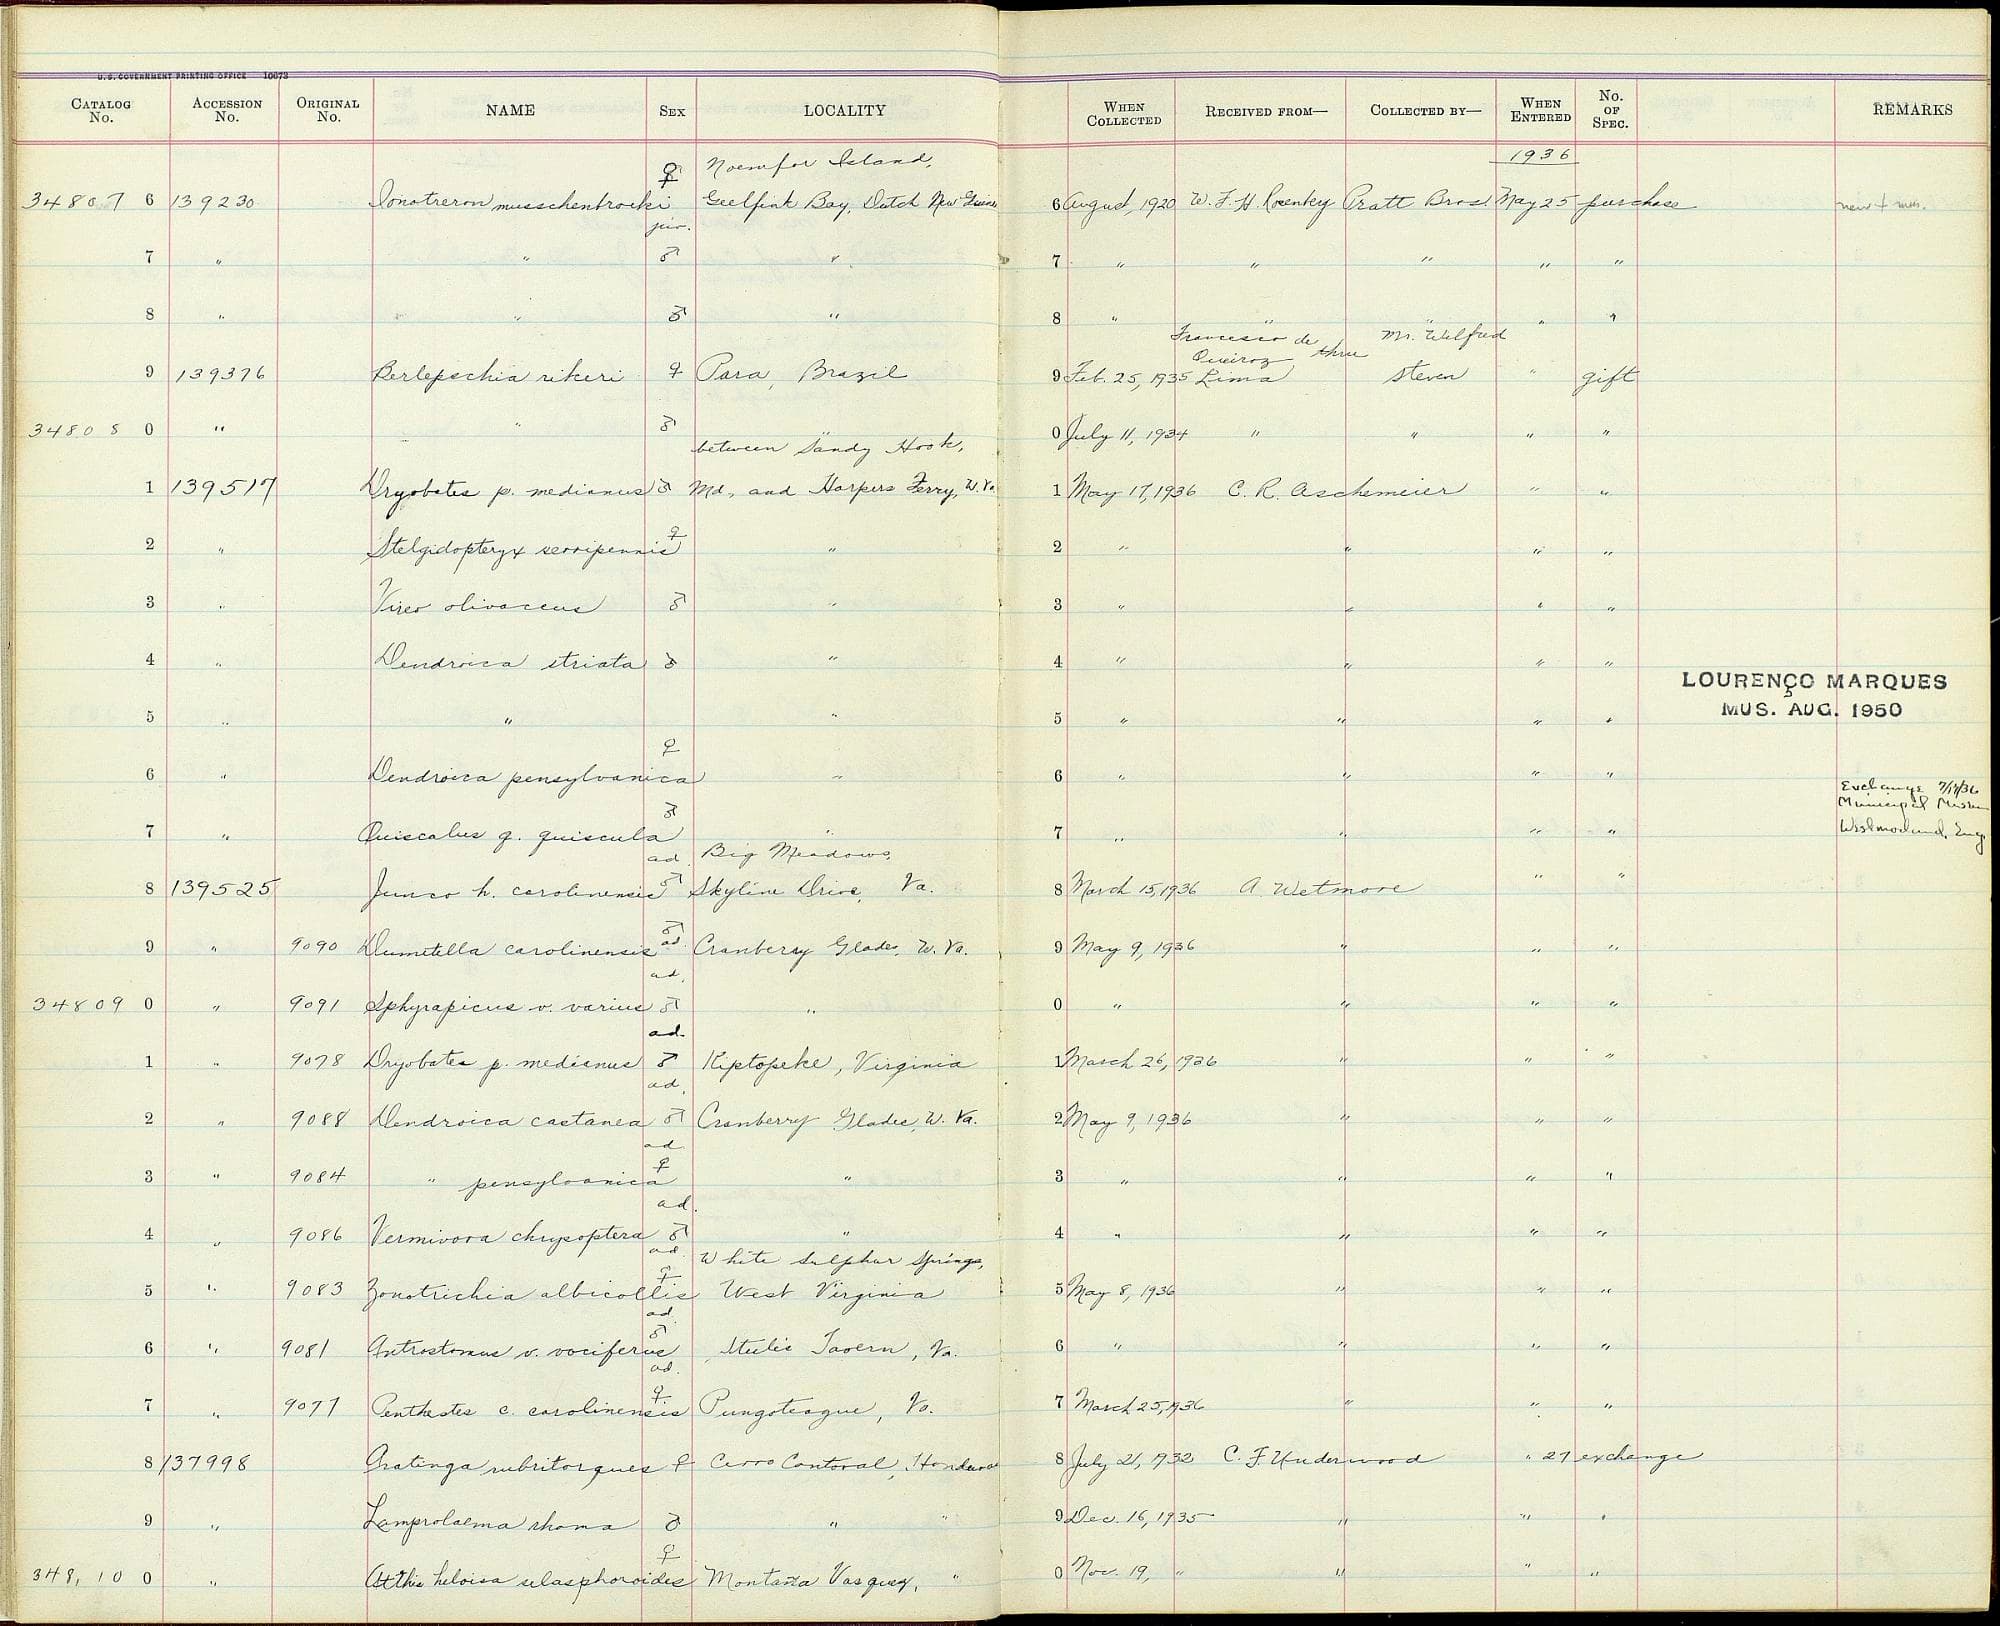 U.S. GOVERNMENT PRINTING OFFICE 10673
CATALOG No. ACCESSION No. ORIGINAL No. NAME SEX LOCALITY WHEN COLLECTED RECEIVED FROM— COLLECTED BY— WHEN ENTERED No. OF SPEC. REMARKS
1936
♀ Noemfor Island,
34807 6 139230 Ionotreron musschenbroeki juv. Geelfink Bay, Dutch New Guinea 6 August, 1920 W. F. H. Rosenberg Pratt Bros. May 25 purchase
7 " " ♂ " 7 " " " " "
8 " " ♂ " 8 " " " " "
Francesco de Queiroz thru Mr. Wilfred
9 139376 Berlepschia rikeri ♀ Para, Brazil 9 Feb. 25, 1935 Lima Steven " gift
34808 0 " " ♂ " 0 July 11, 1934 " " " "
between Sandy Hook,
1 139517 Dryobates p. medianus ♂ Md, and Harpers Ferry, W. Va 1 May 17, 1936 C. R. Aschemeier " "
2 " Stelgidopteryx serripennis ♀ " 2 " " " "
3 " Vireo olivaceus ♂ " 3 " " " "
4 " Dendroica striata ♂ " 4 " " " "
LOURENÇO MARQUES
MUS. AUG. 1950
5 " " " 5 " " " "
6 " Dendroica pensylvanica ♀ " 6 " " " "
Exchange 7/17/36
Municipal Museum
7 " Quiscalus q. quiscula ♂ " 7 " " " " Westmorland, Eng.
ad. Big Meadows,
8 139525 Junco h. carolinensis ♂ Skyline Drive, Va. 8 March 15, 1936 A. Wetmore " "
9 " 9090 Dumetella carolinensis ♂ ad. Cranberry Glades, W. Va. 9 May 9, 1936 " " "
34809 0 " 9091 Sphyrapicus v. varius ad. ♂ " 0 " " " "
1 " 9078 Dryobates p. medianus ad. ♂ Kiptopeke, Virginia 1 March 26, 1936 " " "
2 " 9088 Dendroica castanea ad. ♂ Cranberry Glades, W. Va. 2 May 9, 1936 " " "
3 " 9084 " pensylvanica ad. ♀ " 3 " " " "
4 " 9086 Vermivora chrysoptera ad. ♂ " 4 " " " "
White Sulphur Springs,
5 " 9083 Zonotrichia albicollis ad. ♀ West Virginia 5 May 8, 1936 " " "
6 " 9081 Antrostomus v. vociferus ad. ♂ Tavern, Va. 6 " " " "
7 " 9077 Penthestes c. carolinensis ad. ♀ Pungoteague, Va. 7 March 25, 1936 " " "
8 137998 Aratinga rubritorques ♀ Cerro Cantoral, Honduras 8 July 21, 1932 C. F. Underwood " 27 exchange
9 " Lamprolaema rhami ♂ " " 9 Dec. 16, 1935 " " "
348,10 0 " Atthis heloisa selasphoroides ♀ Montaña Vasquez, " 0 Nov. 19, " " " "